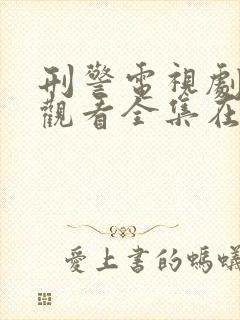 刑警電視劇
觀看全集在
愛上書的螞蟻